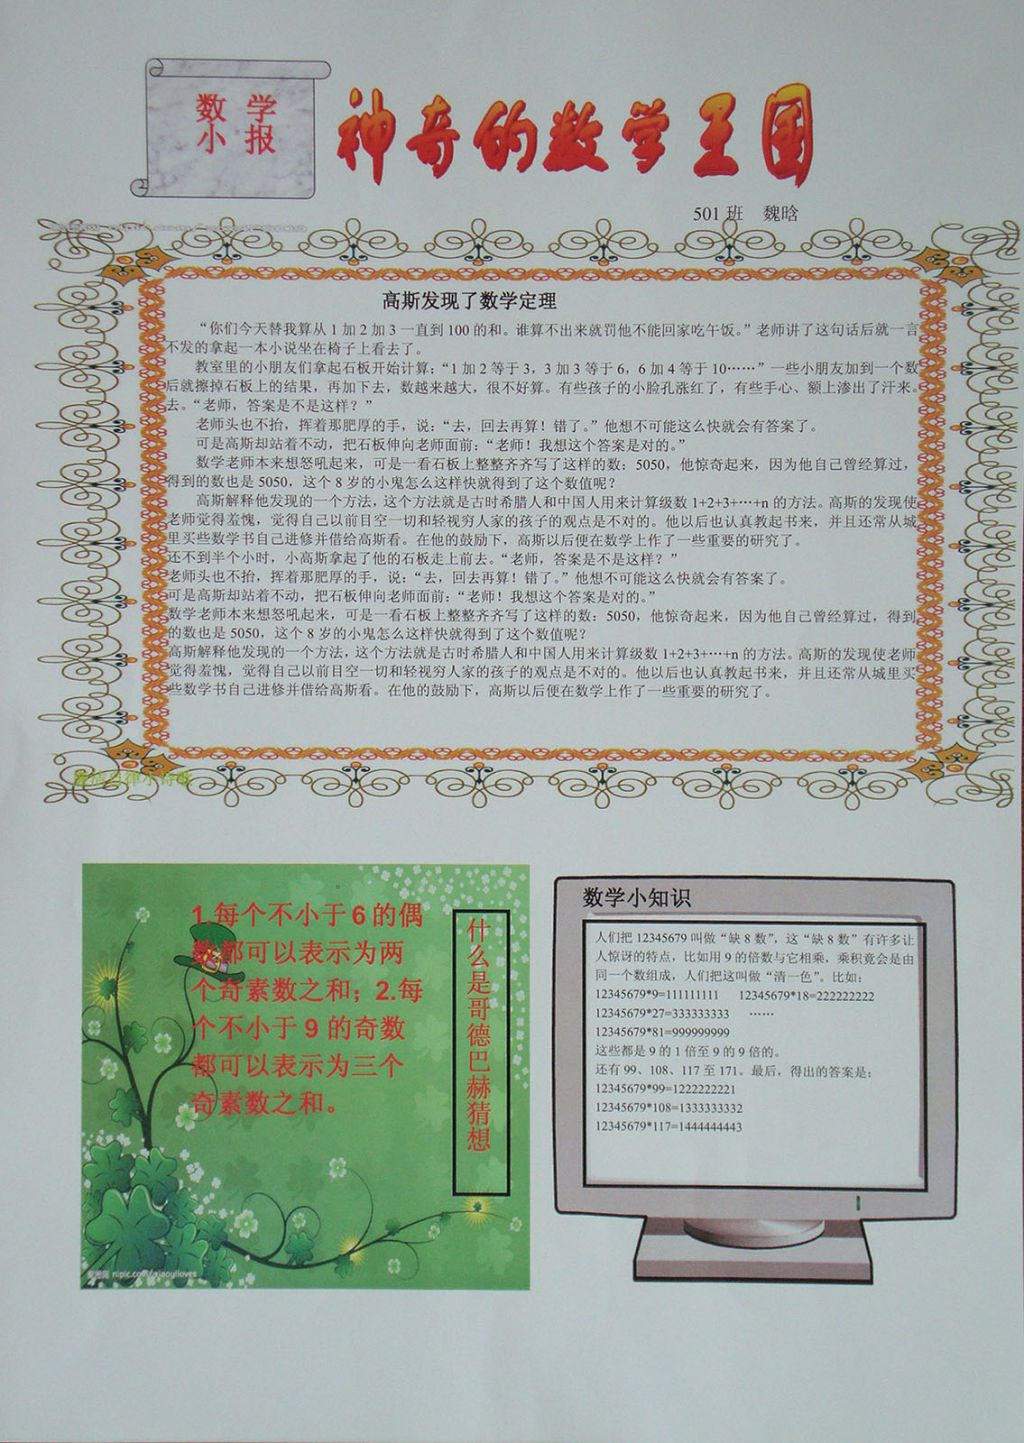 数 学
小 报
神奇的数学王国
501 班 魏晗
高斯发现了数学定理
“你们今天替我算从 1 加 2 加 3 一直到 100 的和。谁算不出来就罚他不能回家吃午饭。”老师讲了这句话后就一言
不发的拿起一本小说坐在椅子上看去了。
教室里的小朋友们拿起石板开始计算：“1 加 2 等于 3，3 加 3 等于 6，6 加 4 等于 10……”一些小朋友加到一个数
后就擦掉石板上的结果，再加下去，数越来越大，很不好算。有些孩子的小脸孔涨红了，有些手心、额上渗出了汗来。
去。“老师，答案是不是这样？”
老师头也不抬，挥着那肥厚的手，说：“去，回去再算！错了。”他想不可能这么快就会有答案了。
可是高斯却站着不动，把石板伸向老师面前：“老师！我想这个答案是对的。”
数学老师本来想怒吼起来，可是一看石板上整整齐齐写了这样的数：5050，他惊奇起来，因为他自己曾经算过，
得到的数也是 5050，这个 8 岁的小鬼怎么这样快就得到了这个数值呢？
高斯解释他发现的一个方法，这个方法就是古时希腊人和中国人用来计算级数 1+2+3+…+n 的方法。高斯的发现使
老师觉得羞愧，觉得自己以前目空一切和轻视穷人家的孩子的观点是不对的。他以后也认真教起书来，并且还常从城
里买些数学书自己进修并借给高斯看。在他的鼓励下，高斯以后便在数学上作了一些重要的研究了。
还不到半个小时，小高斯拿起了他的石板走上前去。“老师，答案是不是这样？”
老师头也不抬，挥着那肥厚的手，说：“去，回去再算！错了。”他想不可能这么快就会有答案了。
可是高斯却站着不动，把石板伸向老师面前：“老师！我想这个答案是对的。”
数学老师本来想怒吼起来，可是一看石板上整整齐齐写了这样的数：5050，他惊奇起来，因为他自己曾经算过，得到
的数也是 5050，这个 8 岁的小鬼怎么这样快就得到了这个数值呢？
高斯解释他发现的一个方法，这个方法就是古时希腊人和中国人用来计算级数 1+2+3+…+n 的方法。高斯的发现使老师
觉得羞愧，觉得自己以前目空一切和轻视穷人家的孩子的观点是不对的。他以后也认真教起书来，并且还常从城里买
些数学书自己进修并借给高斯看。在他的鼓励下，高斯以后便在数学上作了一些重要的研究了。
什么是哥德巴赫猜想
1.每个不小于 6 的偶
数都可以表示为两
个奇素数之和；2.每
个不小于 9 的奇数
都可以表示为三个
奇素数之和。
nipic.com/xiaoyiloves
数学小知识
人们把 12345679 叫做“缺 8 数”，这“缺 8 数”有许多让
人惊讶的特点，比如用 9 的倍数与它相乘，乘积竟会是由
同一个数组成，人们把这叫做“清一色”。比如：
12345679*9=111111111 12345679*18=222222222
12345679*27=333333333 ……
12345679*81=999999999
这些都是 9 的 1 倍至 9 的 9 倍的。
还有 99、108、117 至 171。最后，得出的答案是：
12345679*99=1222222221
12345679*108=1333333332
12345679*117=1444444443